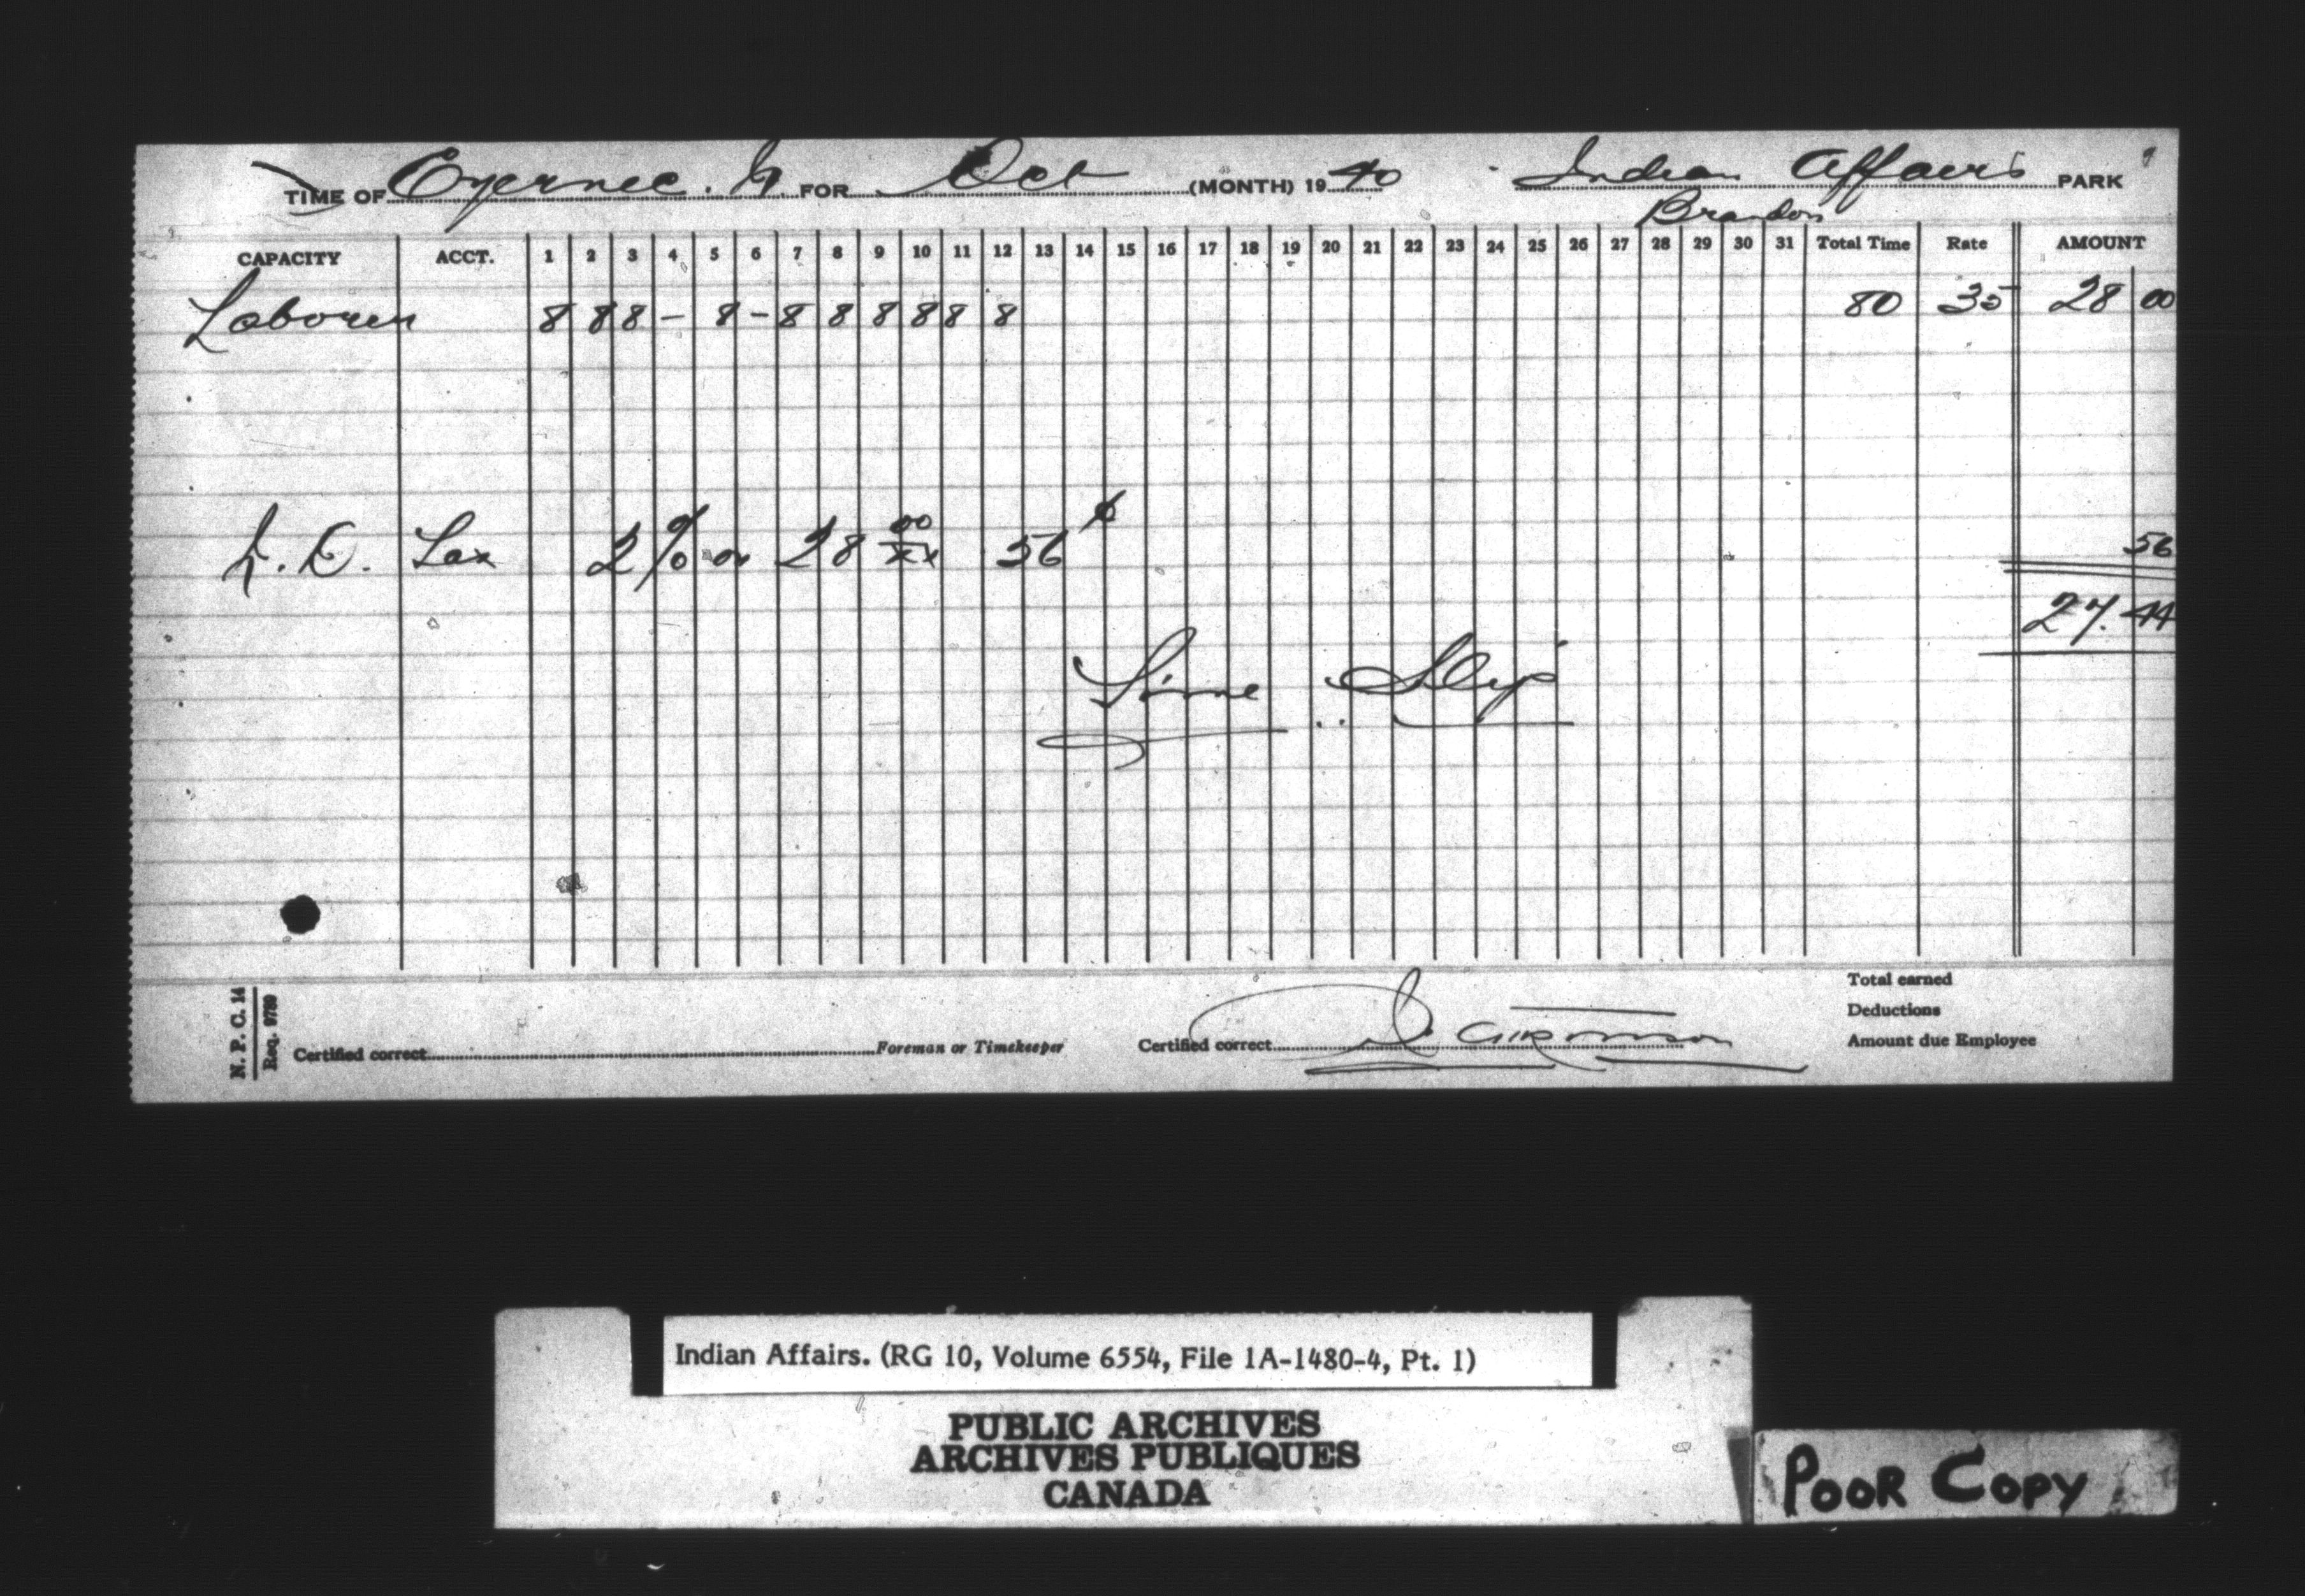 TIME OF FOR Oct (MONTH) 1940 Indian Affairs PARK
Brandon
CAPACITY ACCT. 1 2 3 4 5 6 7 8 9 10 11 12 13 14 15 16 17 18 19 20 21 22 23 24 25 26 27 28 29 30 31 Total Time Rate AMOUNT
Laborer 8 8 8 - 8 - 8 8 8 8 8 8 80 35 28 00
Tax 2 % on 28 00/xx 56 ¢ 56
27.44
Time Slip
Total earned
Deductions
Certified correct Foreman or Timekeeper Certified correct Amount due Employee
N. P. C. 14
Req. 9789
Indian Affairs. (RG 10, Volume 6554, File 1A-1480-4, Pt. 1)
PUBLIC ARCHIVES
ARCHIVES PUBLIQUES
CANADA
POOR COPY